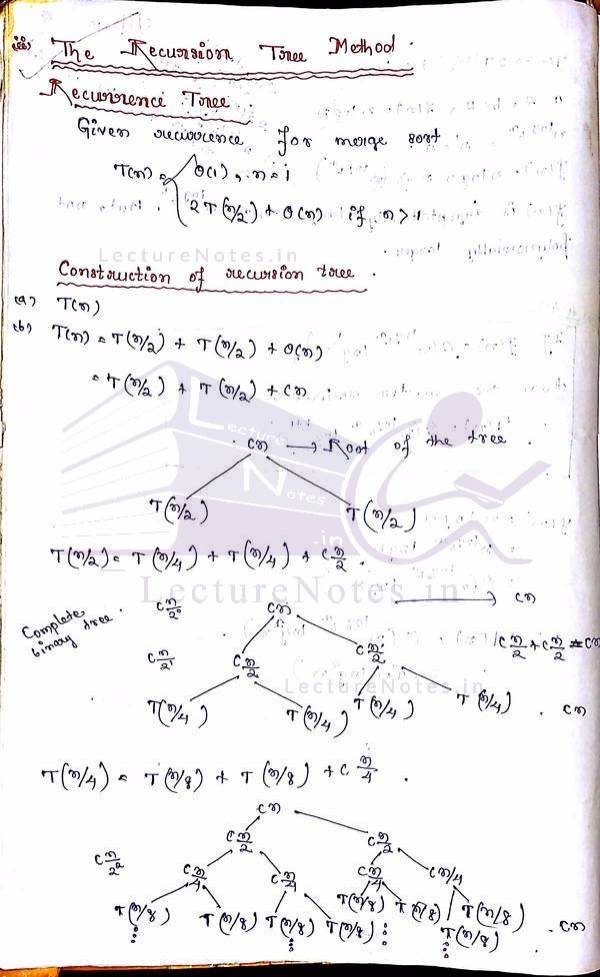 iii) The Recursion Tree Method.
Recurrence Tree.
Given recurrence for merge sort
T(n) = { O(1), n = 1
2T(n/2) + O(n) if n > 1
LectureNotes.in
Construction of recursion tree.
(a) T(n)
(b) T(n) = T(n/2) + T(n/2) + O(n)
= T(n/2) + T(n/2) + cn.
cn → Root of the tree.
T(n/2) T(n/2)
Lecture Notes .in
T(n/2) = T(n/4) + T(n/4) + c n/2.
LectureNotes.in
Complete binary tree.
c n/2⁰ cn → cn
c n/2¹ c n/2 c n/2 c n/2 + c n/2 = cn
LectureNotes.in
T(n/4) T(n/4) T(n/4) T(n/4). cn
T(n/4) = T(n/8) + T(n/8) + c n/4.
cn
c n/2 c n/2
c n/2² c n/4 c n/4 c n/4 cn/4
T(n/8) T(n/8) T(n/8) T(n/8) T(n/8) T(n/8) T(n/8) T(n/8). cn